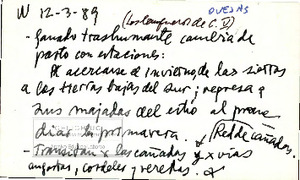 W 12-3-89 OVEJAS
(Los Longueros de C. V)
- Ganado trashumante cambia de
pasto con estaciones:
Al acercarse el invierno, de las sierras
a las tierras bajas del sur; regresa a
sus majadas del estío al prome
diar la primavera. Red de cañadas.
- Transitan x las cañadas y x vías
angostas, cordeles y veredas.